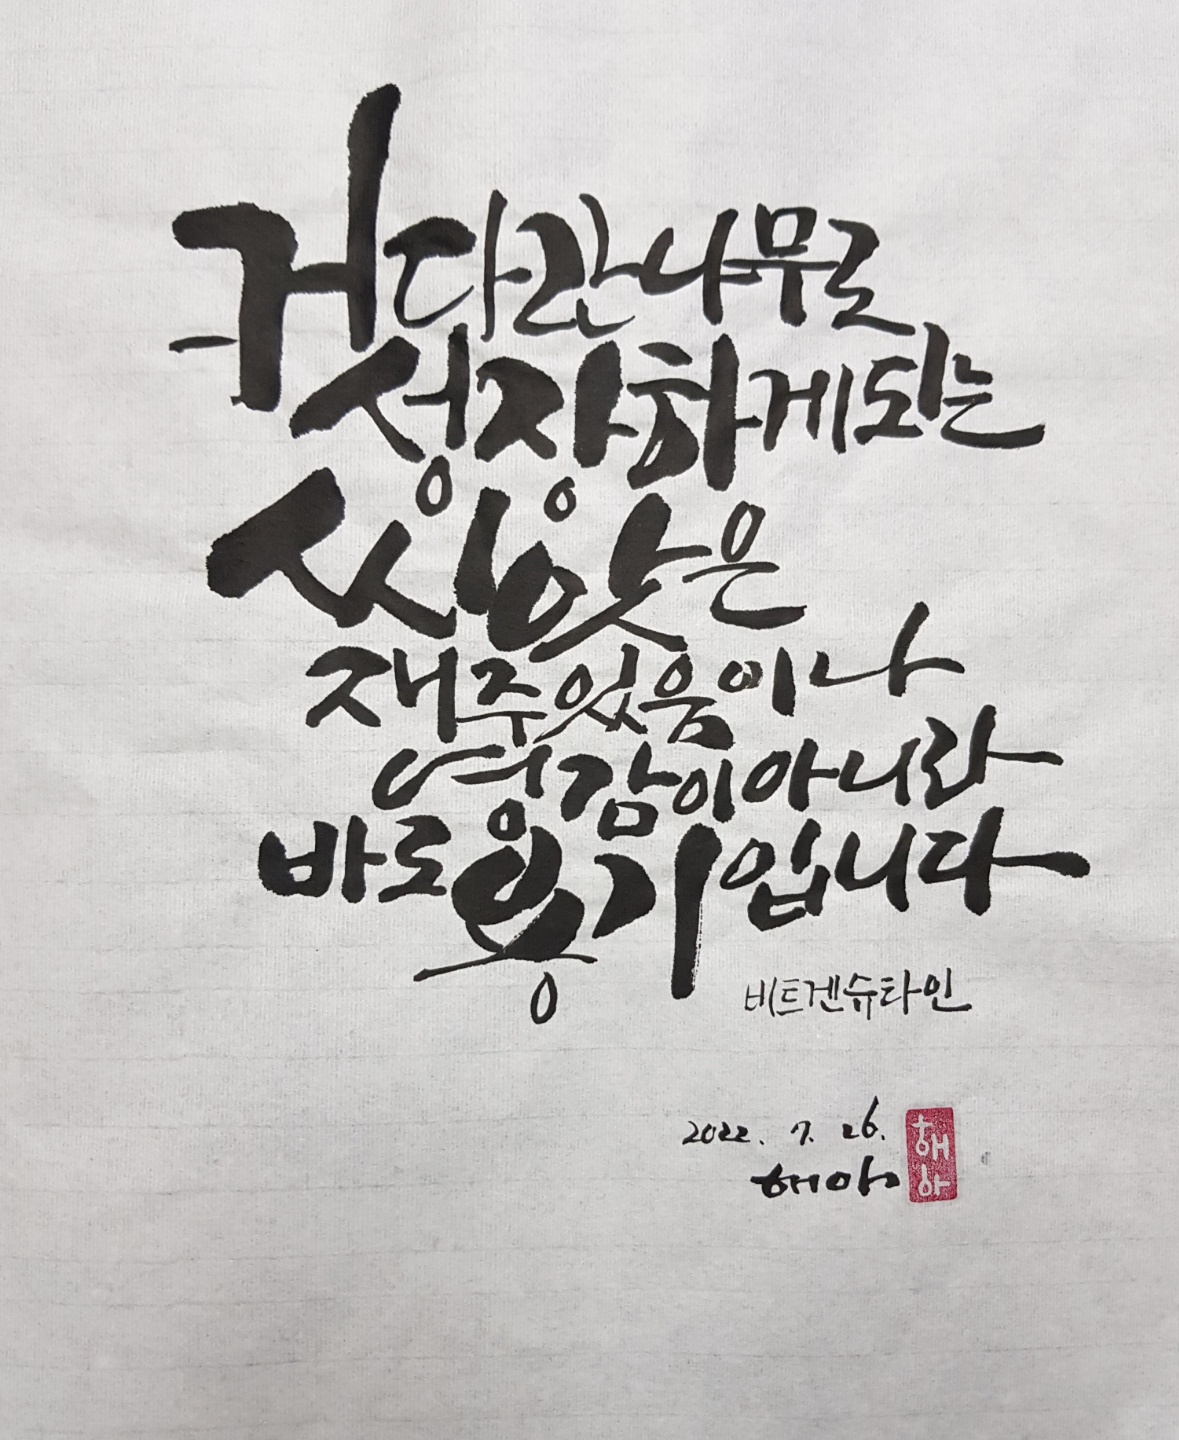 거다란 나무로
성장하게 되는
씨앗은
재주있음이나
영감이 아니라
바로 용기입니다
비트겐슈타인
2022. 7. 26.
해아
해아